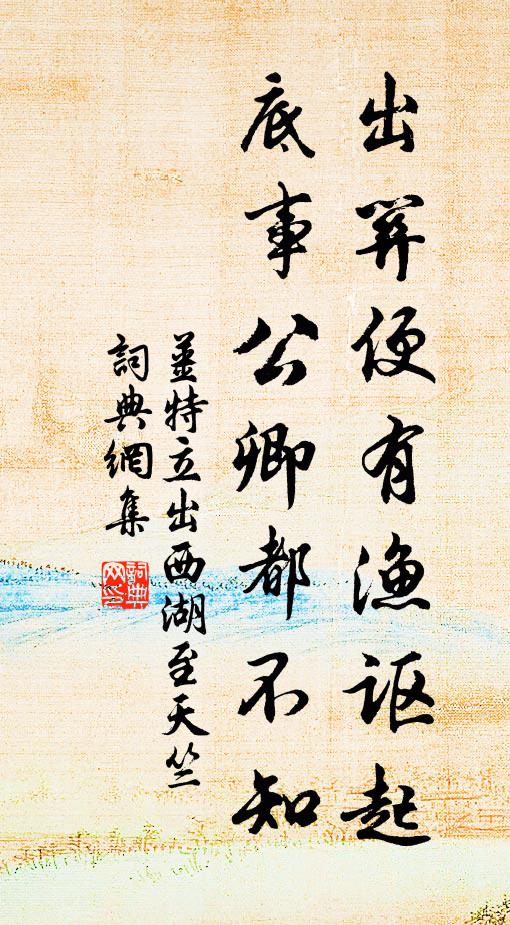 出便有渔讴起
底事公卿都不知
薑特立出西湖至天竺
詞典網集